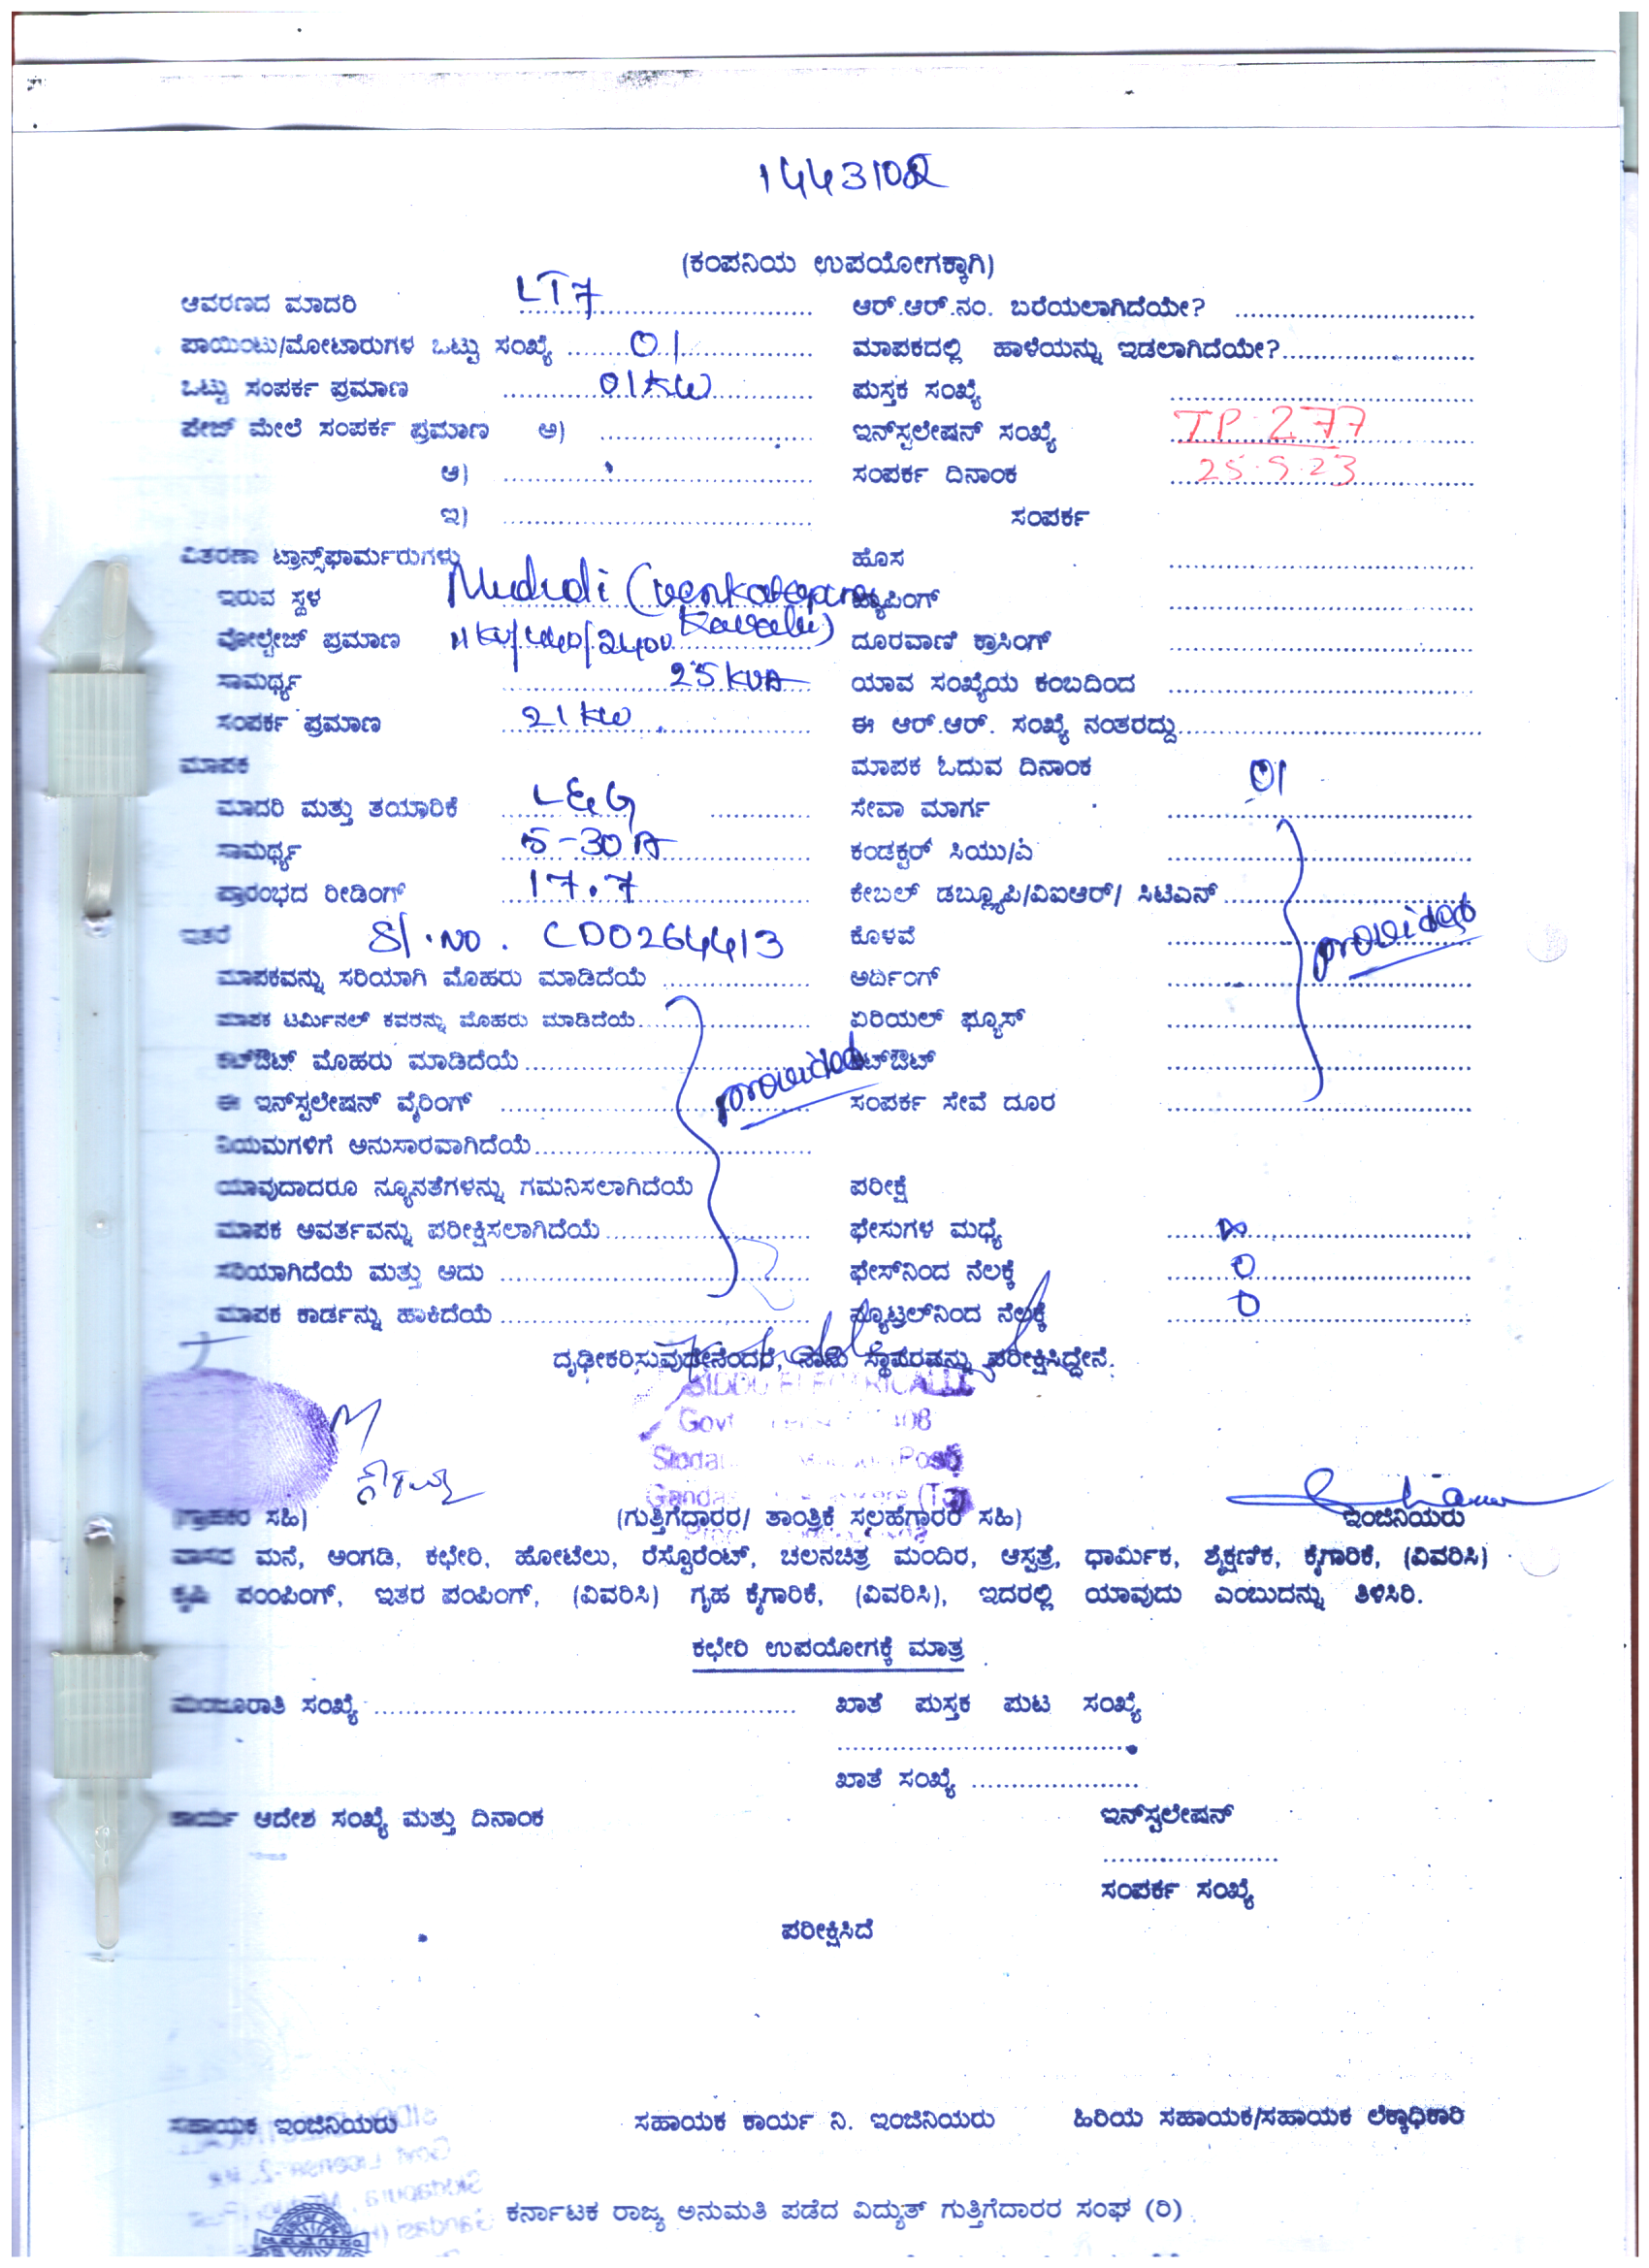 1443102
(ಕಂಪನಿಯ ಉಪಯೋಗಕ್ಕಾಗಿ)
ಆವರಣದ ಮಾದರಿ LT7 ಆರ್.ಆರ್.ನಂ. ಬರೆಯಲಾಗಿದೆಯೇ?
ಪಾಯಿಂಟು/ಮೋಟಾರುಗಳ ಒಟ್ಟು ಸಂಖ್ಯೆ 01 ಮಾಪಕದಲ್ಲಿ ಹಾಳೆಯನ್ನು ಇಡಲಾಗಿದೆಯೇ?
ಒಟ್ಟು ಸಂಪರ್ಕ ಪ್ರಮಾಣ 01KW ಪುಸ್ತಕ ಸಂಖ್ಯೆ
ಪೇಜ್ ಮೇಲೆ ಸಂಪರ್ಕ ಪ್ರಮಾಣ ಅ) ಇನ್‌ಸ್ಟಲೇಷನ್ ಸಂಖ್ಯೆ TP-277
ಆ) ಸಂಪರ್ಕ ದಿನಾಂಕ 25.5.23
ಇ) ಸಂಪರ್ಕ
ವಿತರಣಾ ಟ್ರಾನ್ಸ್‌ಫಾರ್ಮರುಗಳು ಹೊಸ
ಇರುವ ಸ್ಥಳ Mududi (venkatapura ಟ್ಯಾಪಿಂಗ್
Kavalu)
ವೋಲ್ಟೇಜ್ ಪ್ರಮಾಣ 11KV/440/2400 ದೂರವಾಣಿ ಕ್ರಾಸಿಂಗ್
ಸಾಮರ್ಥ್ಯ 25 KVA ಯಾವ ಸಂಖ್ಯೆಯ ಕಂಬದಿಂದ
ಸಂಪರ್ಕ ಪ್ರಮಾಣ 21 KW ಈ ಆರ್.ಆರ್. ಸಂಖ್ಯೆ ನಂತರದ್ದು
ಮಾಪಕ ಮಾಪಕ ಓದುವ ದಿನಾಂಕ 01
ಮಾದರಿ ಮತ್ತು ತಯಾರಿಕೆ L&G ಸೇವಾ ಮಾರ್ಗ
ಸಾಮರ್ಥ್ಯ 5-30 A ಕಂಡಕ್ಟರ್ ಸಿಯು/ಎ
ಪ್ರಾರಂಭದ ರೀಡಿಂಗ್ 17.7 ಕೇಬಲ್ ಡಬ್ಲ್ಯೂಪಿ/ವಿಐಆರ್/ ಸಿಟಿಎನ್
ಇತರೆ Sl.No. CD0264413 ಕೊಳವೆ provided
ಮಾಪಕವನ್ನು ಸರಿಯಾಗಿ ಮೊಹರು ಮಾಡಿದೆಯೆ ಅರ್ಥಿಂಗ್
ಮಾಪಕ ಟರ್ಮಿನಲ್ ಕವರನ್ನು ಮೊಹರು ಮಾಡಿದೆಯೆ ಏರಿಯಲ್ ಫ್ಯೂಸ್
ಕಟ್‌ಔಟ್ ಮೊಹರು ಮಾಡಿದೆಯೆ provided ಕಟ್‌ಔಟ್
ಈ ಇನ್‌ಸ್ಟಲೇಷನ್ ವೈರಿಂಗ್ ಸಂಪರ್ಕ ಸೇವೆ ದೂರ
ನಿಯಮಗಳಿಗೆ ಅನುಸಾರವಾಗಿದೆಯೆ
ಯಾವುದಾದರೂ ನ್ಯೂನತೆಗಳನ್ನು ಗಮನಿಸಲಾಗಿದೆಯೆ ಪರೀಕ್ಷೆ
ಮಾಪಕ ಅವರ್ತವನ್ನು ಪರೀಕ್ಷಿಸಲಾಗಿದೆಯೆ ಫೇಸುಗಳ ಮಧ್ಯೆ ∞
ಸರಿಯಾಗಿದೆಯೆ ಮತ್ತು ಅದು ಫೇಸ್‌ನಿಂದ ನೆಲಕ್ಕೆ 0
ಮಾಪಕ ಕಾರ್ಡನ್ನು ಹಾಕಿದೆಯೆ ನ್ಯೂಟ್ರಲ್‌ನಿಂದ ನೆಲಕ್ಕೆ 0
ದೃಢೀಕರಿಸುವುದೇನೆಂದರೆ, ನಾನು ಸ್ಥಾವರವನ್ನು ಪರೀಕ್ಷಿಸಿದ್ದೇನೆ.
SIDDU ELECTRICALS
Govt
(ಗ್ರಾಹಕರ ಸಹಿ) (ಗುತ್ತಿಗೆದಾರರ/ ತಾಂತ್ರಿಕ ಸಲಹೆಗಾರರ ಸಹಿ) ಇಂಜಿನಿಯರು
ವಾಸದ ಮನೆ, ಅಂಗಡಿ, ಕಛೇರಿ, ಹೋಟೆಲು, ರೆಸ್ಟೊರೆಂಟ್, ಚಲನಚಿತ್ರ ಮಂದಿರ, ಆಸ್ಪತ್ರೆ, ಧಾರ್ಮಿಕ, ಶೈಕ್ಷಣಿಕ, ಕೈಗಾರಿಕೆ, (ವಿವರಿಸಿ)
ಕೃಷಿ ಪಂಪಿಂಗ್, ಇತರ ಪಂಪಿಂಗ್, (ವಿವರಿಸಿ) ಗೃಹ ಕೈಗಾರಿಕೆ, (ವಿವರಿಸಿ), ಇದರಲ್ಲಿ ಯಾವುದು ಎಂಬುದನ್ನು ತಿಳಿಸಿರಿ.
ಕಛೇರಿ ಉಪಯೋಗಕ್ಕೆ ಮಾತ್ರ
ಮಂಜೂರಾತಿ ಸಂಖ್ಯೆ ಖಾತೆ ಪುಸ್ತಕ ಪುಟ ಸಂಖ್ಯೆ
ಖಾತೆ ಸಂಖ್ಯೆ
ಕಾರ್ಯ ಆದೇಶ ಸಂಖ್ಯೆ ಮತ್ತು ದಿನಾಂಕ ಇನ್‌ಸ್ಟಲೇಷನ್
ಸಂಪರ್ಕ ಸಂಖ್ಯೆ
ಪರೀಕ್ಷಿಸಿದೆ
ಸಹಾಯಕ ಇಂಜಿನಿಯರು ಸಹಾಯಕ ಕಾರ್ಯ ನಿ. ಇಂಜಿನಿಯರು ಹಿರಿಯ ಸಹಾಯಕ/ಸಹಾಯಕ ಲೆಕ್ಕಾಧಿಕಾರಿ
ಕರ್ನಾಟಕ ರಾಜ್ಯ ಅನುಮತಿ ಪಡೆದ ವಿದ್ಯುತ್ ಗುತ್ತಿಗೆದಾರರ ಸಂಘ (ರಿ)